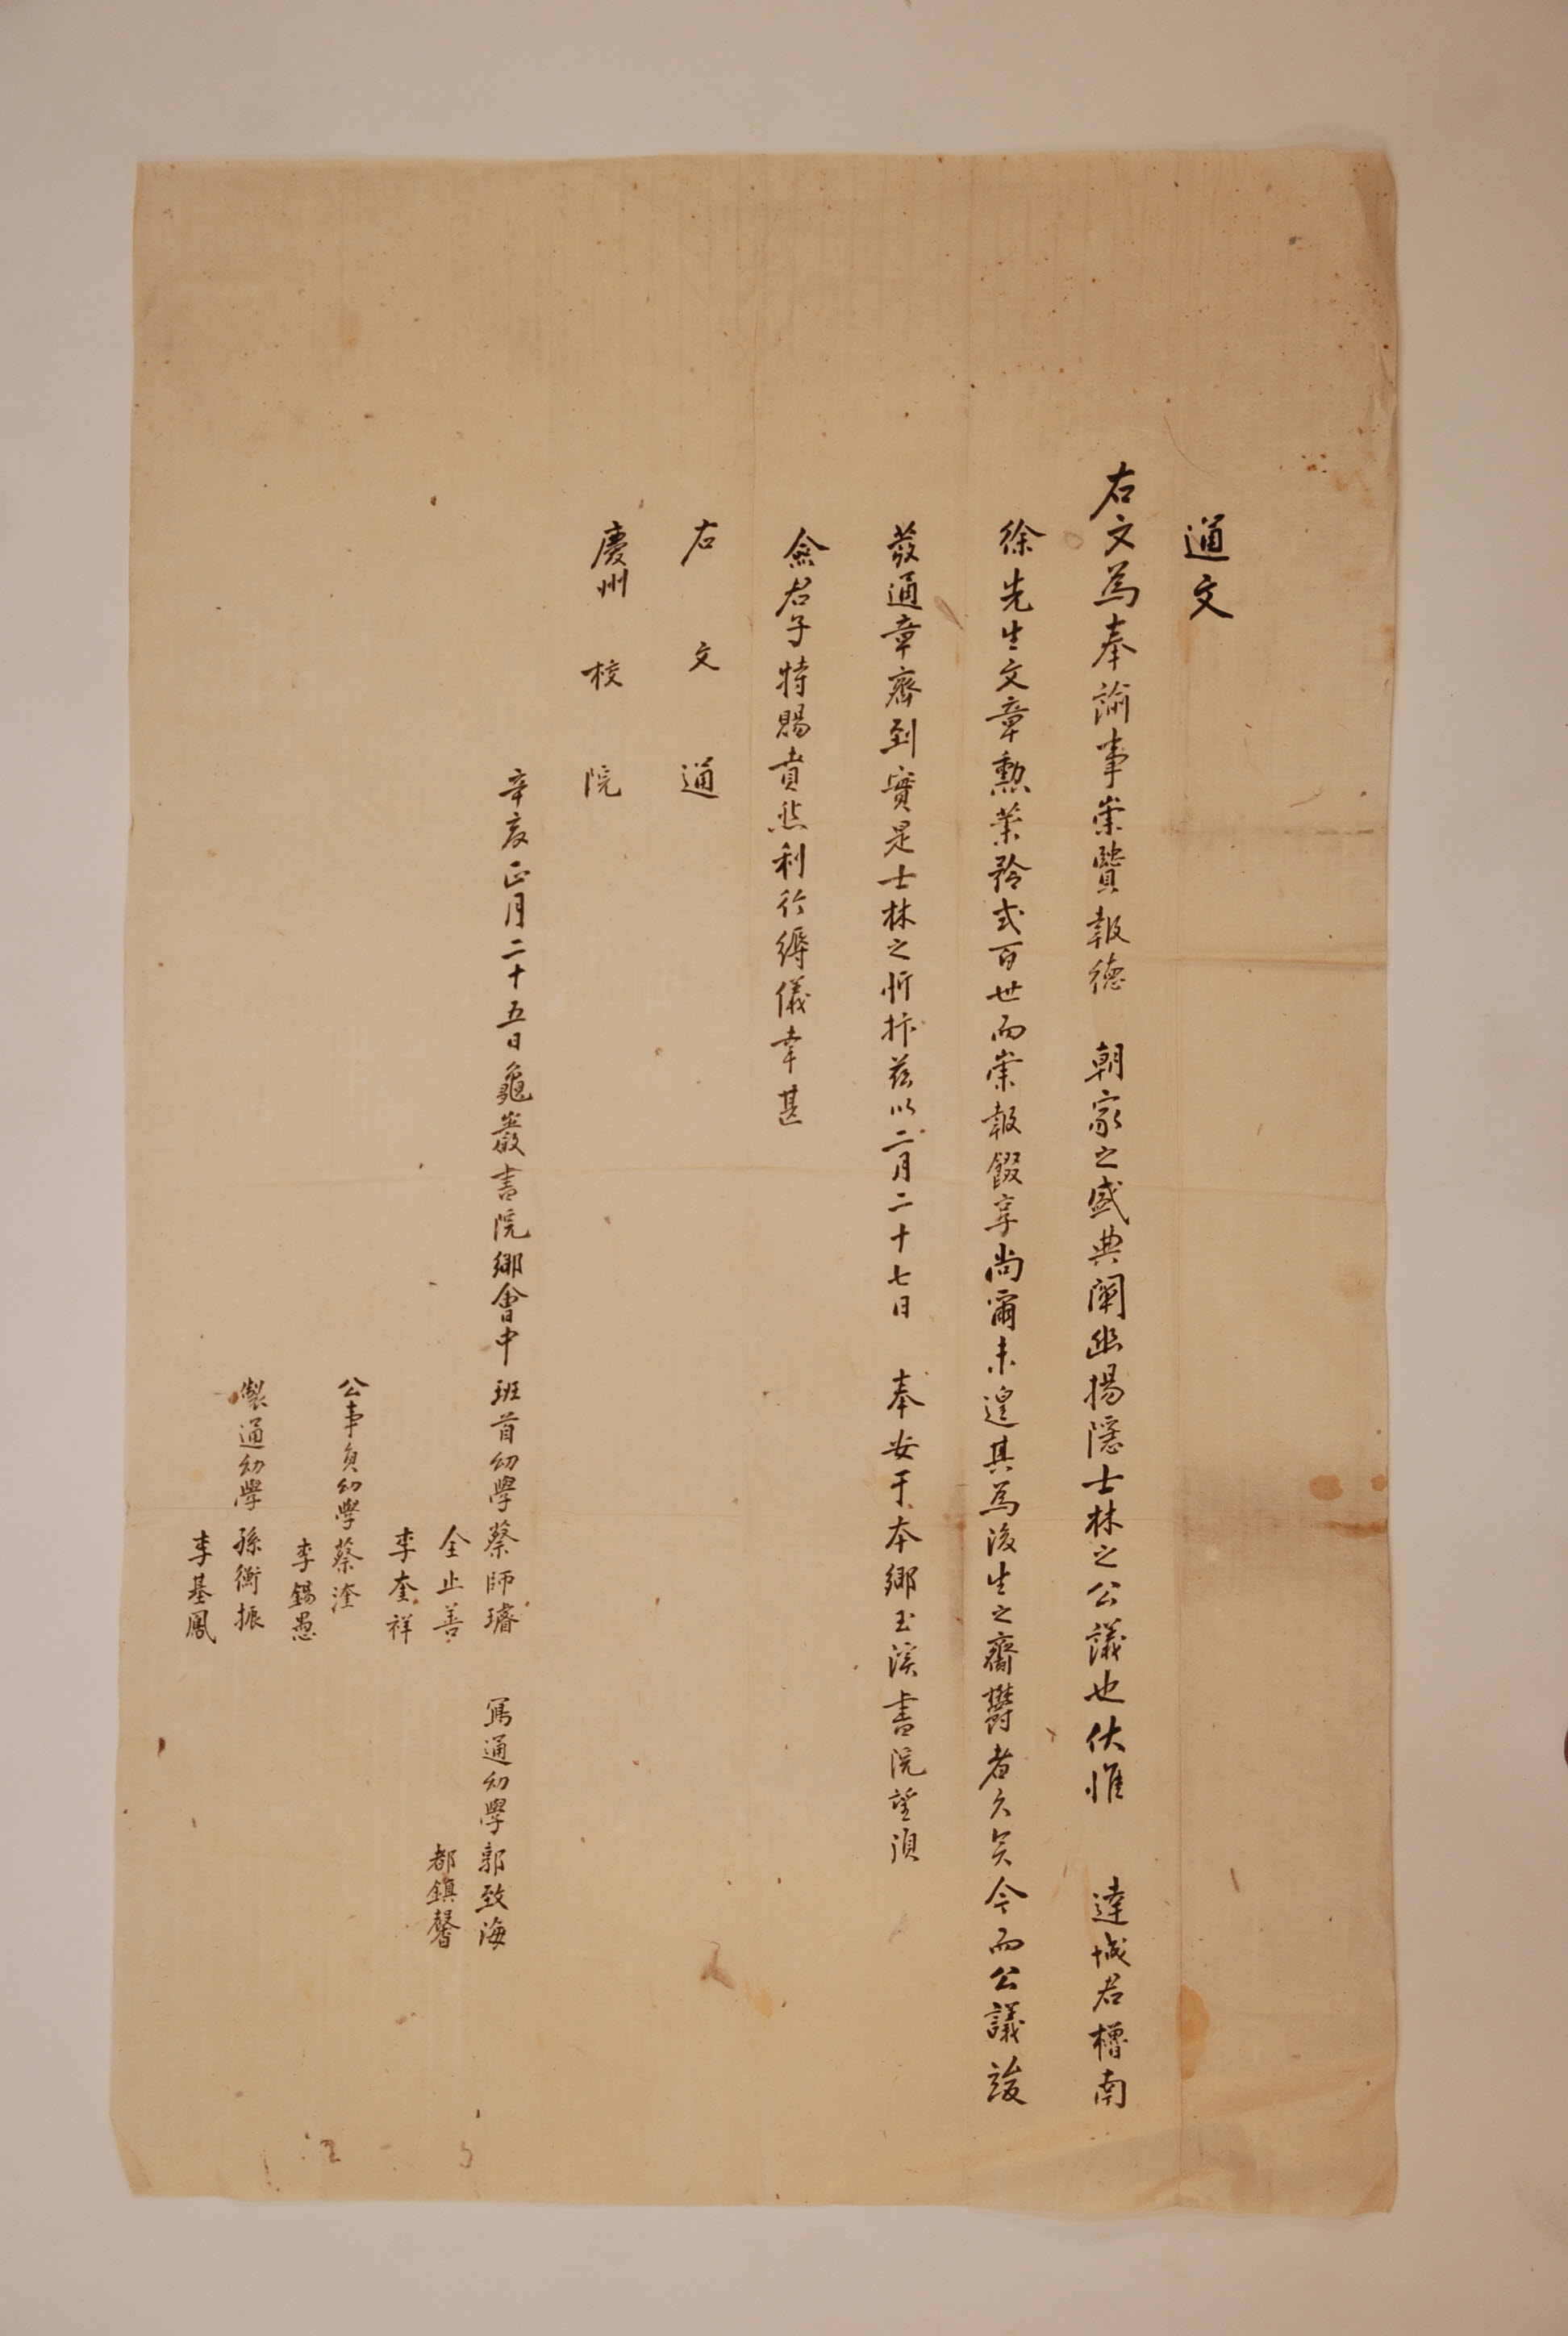 通文
右文爲奉諭事崇賢報德 朝家之盛典闡幽揚隱士林之公議也伏惟 達城君櫓南
徐先生文章勳業矜式百世而崇報餟享尚爾未遑其爲後生之齎鬱者久矣今而公議竣
發通章齊到實是士林之忻抃玆以二月二十七日 奉安于本鄉玉溪書院望須
僉君子特賜賁然利行縟儀幸甚
右文通
慶州校院
辛亥正月二十五日龜巖書院鄉會中 班首幼學蔡師璿
全止善
李奎祥
公事員幼學蔡滢
李錫愚
製通幼學孫衡振
李基鳳
寫通幼學郭致海
都鎭馨